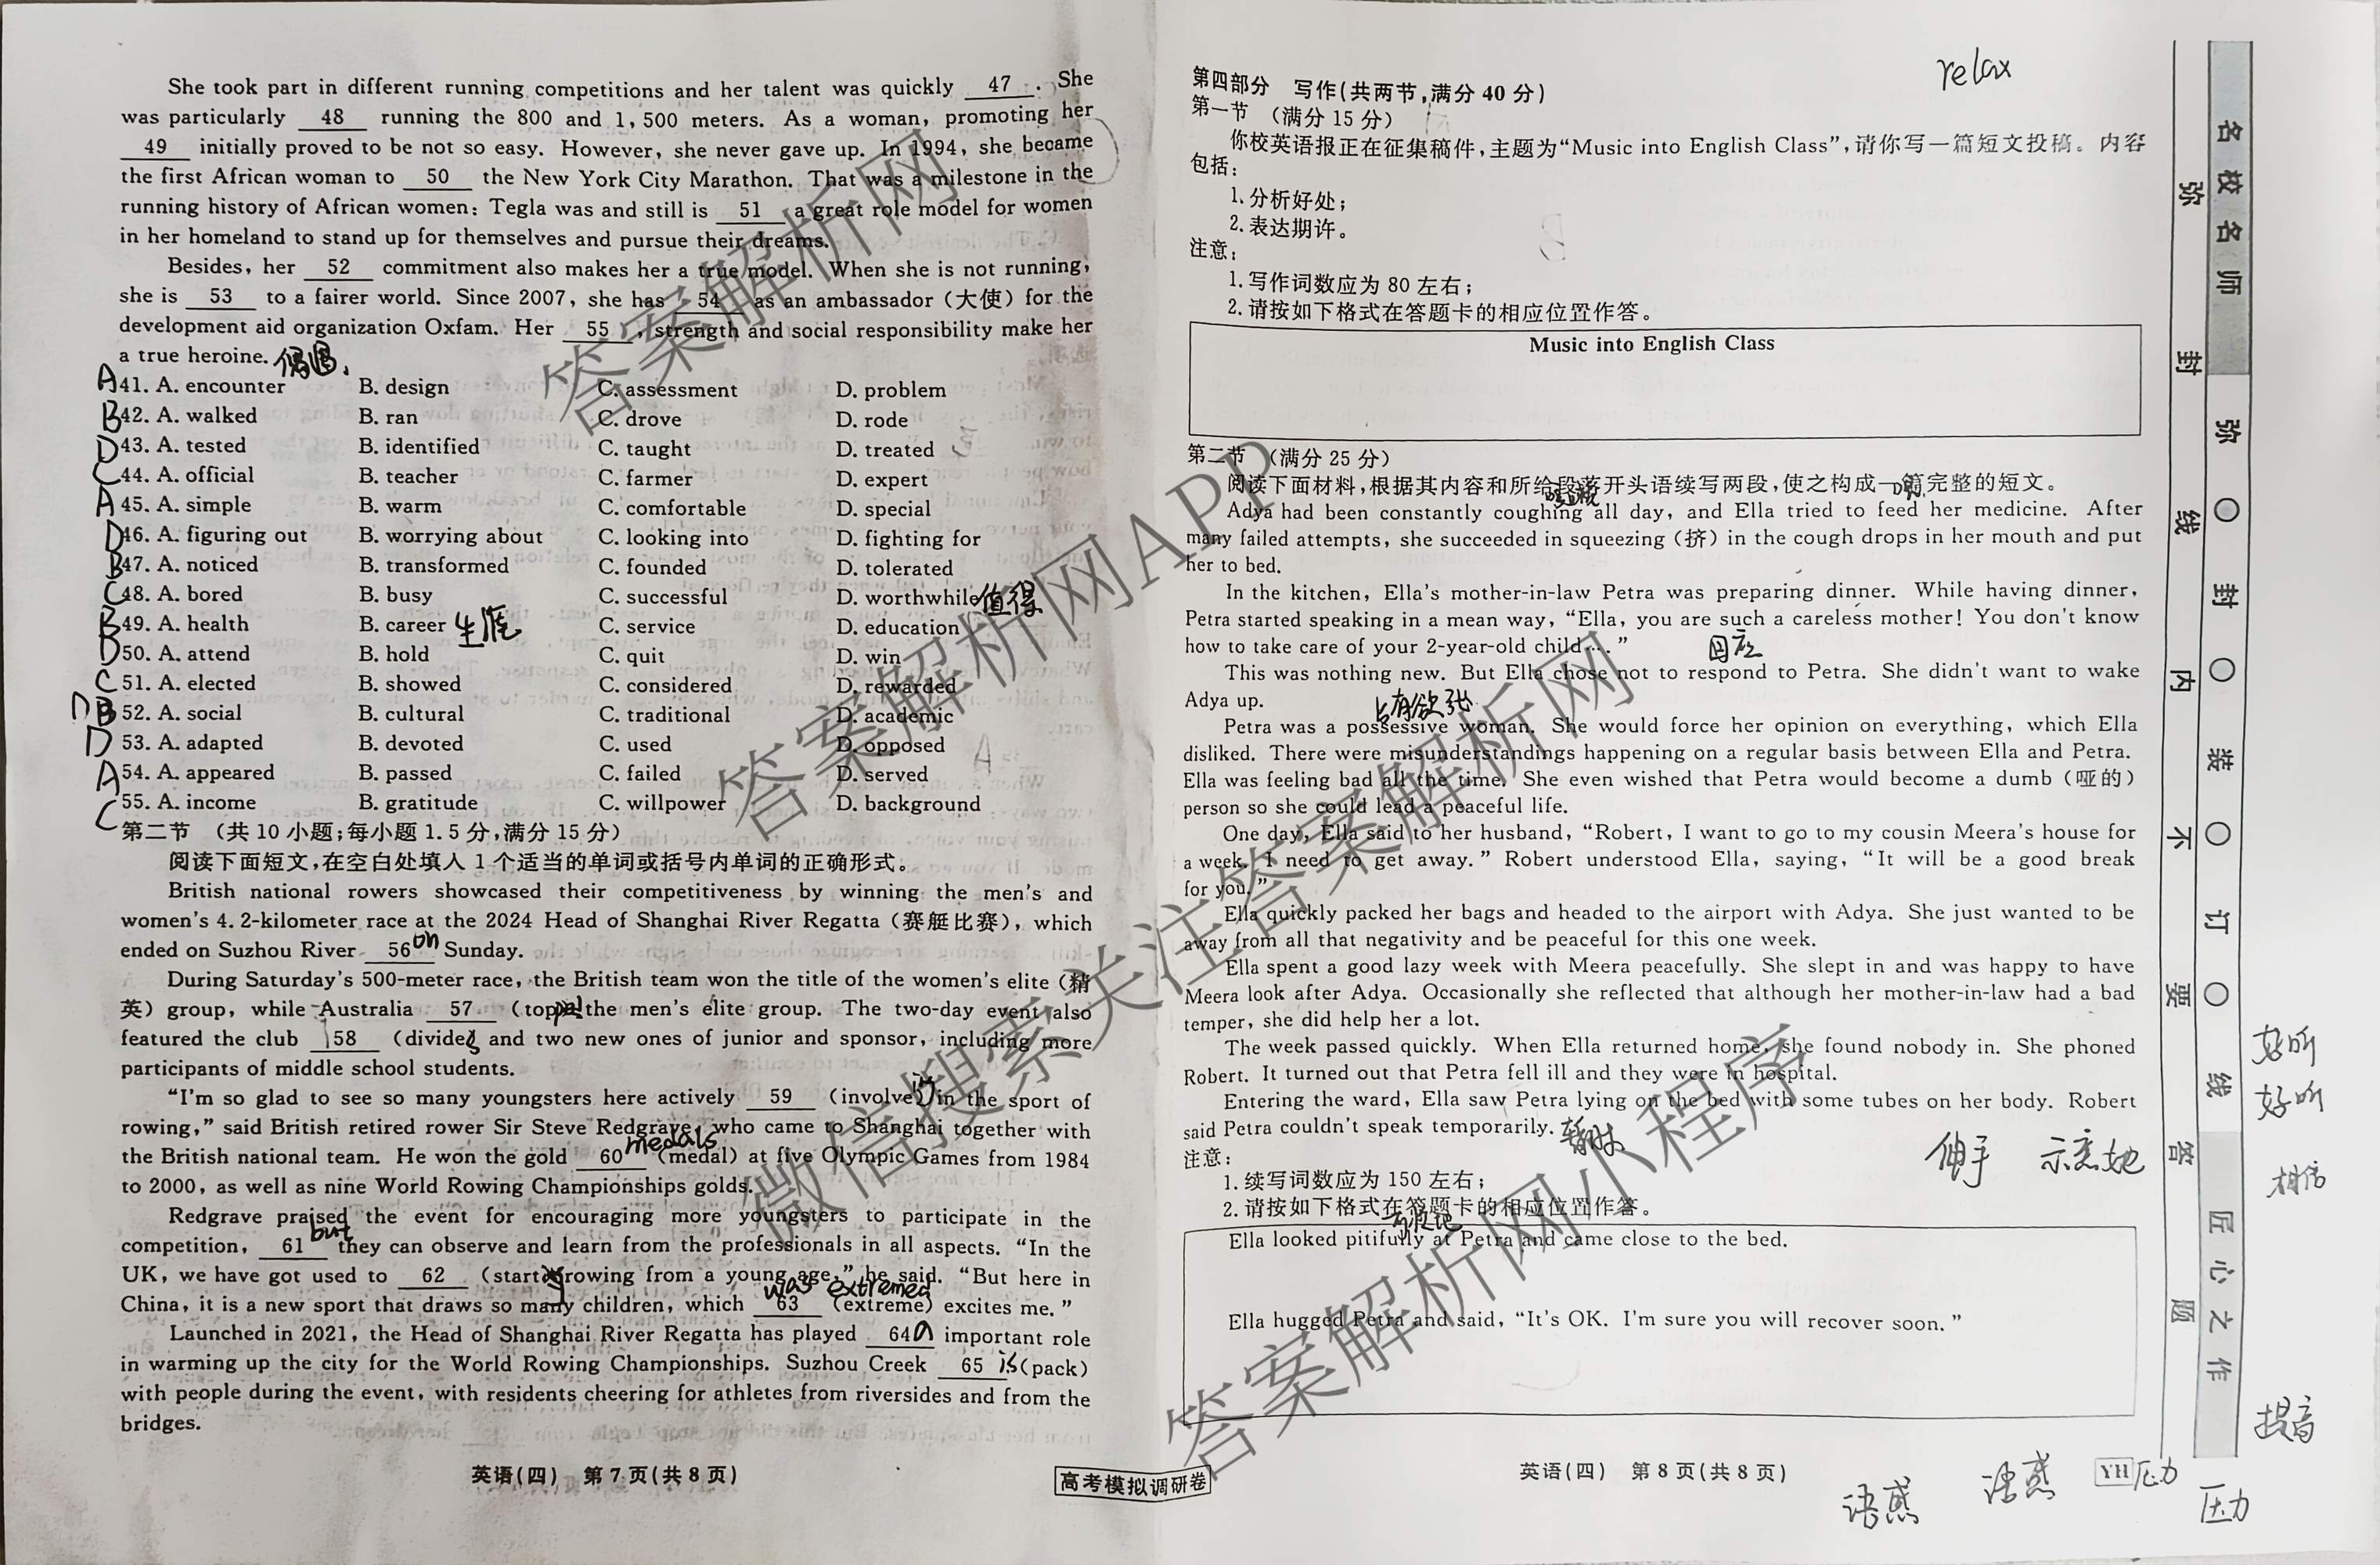 She took part in different running competitions and her talent was quickly 47 . She
was particularly 48 running the 800 and 1,500 meters. As a woman, promoting her
49 initially proved to be not so easy. However, she never gave up. In 1994, she became
the first African woman to 50 the New York City Marathon. That was a milestone in the
running history of African women: Tegla was and still is 51 a great role model for women
in her homeland to stand up for themselves and pursue their dreams.
Besides, her 52 commitment also makes her a true model. When she is not running,
she is 53 to a fairer world. Since 2007, she has 54 as an ambassador (大使) for the
development aid organization Oxfam. Her 55 , strength and social responsibility make her
a true heroine. 偶遇.
A 41. A. encounter B. design C. assessment D. problem
B 42. A. walked B. ran C. drove D. rode
D 43. A. tested B. identified C. taught D. treated
C 44. A. official B. teacher C. farmer D. expert
A 45. A. simple B. warm C. comfortable D. special
D 46. A. figuring out B. worrying about C. looking into D. fighting for
B 47. A. noticed B. transformed C. founded D. tolerated
C 48. A. bored B. busy C. successful D. worthwhile 值得
B 49. A. health B. career 生涯 C. service D. education
D 50. A. attend B. hold C. quit D. win
C 51. A. elected B. showed C. considered D. rewarded
B 52. A. social B. cultural C. traditional D. academic
D 53. A. adapted B. devoted C. used D. opposed
A 54. A. appeared B. passed C. failed D. served
C 55. A. income B. gratitude C. willpower D. background
第二节 (共 10 小题;每小题 1.5 分,满分 15 分)
阅读下面短文,在空白处填入 1 个适当的单词或括号内单词的正确形式。
British national rowers showcased their competitiveness by winning the men's and
women's 4.2-kilometer race at the 2024 Head of Shanghai River Regatta (赛艇比赛), which
ended on Suzhou River 56 on Sunday.
During Saturday's 500-meter race, the British team won the title of the women's elite (精
英) group, while Australia 57 (top) the men's elite group. The two-day event also
featured the club 58 (divide) and two new ones of junior and sponsor, including more
participants of middle school students.
"I'm so glad to see so many youngsters here actively 59 (involve) in the sport of
rowing," said British retired rower Sir Steve Redgrave, who came to Shanghai together with
the British national team. He won the gold 60 medals (medal) at five Olympic Games from 1984
to 2000, as well as nine World Rowing Championships golds.
Redgrave praised the event for encouraging more youngsters to participate in the
competition, 61 but they can observe and learn from the professionals in all aspects. "In the
UK, we have got used to 62 (start) rowing from a young age," he said. "But here in
China, it is a new sport that draws so many children, which 63 was extremed (extreme) excites me."
Launched in 2021, the Head of Shanghai River Regatta has played 64 important role
in warming up the city for the World Rowing Championships. Suzhou Creek 65 is (pack)
with people during the event, with residents cheering for athletes from riversides and from the
bridges.
英语(四) 第 7 页(共 8 页)
高考模拟调研卷
relax
第四部分 写作(共两节,满分 40 分)
第一节 (满分 15 分)
你校英语报正在征集稿件,主题为“Music into English Class”,请你写一篇短文投稿。内容
包括:
1.分析好处;
2.表达期许。
注意:
1.写作词数应为 80 左右;
2.请按如下格式在答题卡的相应位置作答。
Music into English Class
第二节 (满分 25 分)
阅读下面材料,根据其内容和所给段落开头语续写两段,使之构成一篇完整的短文。
Adya had been constantly coughing all day, and Ella tried to feed her medicine. After
many failed attempts, she succeeded in squeezing (挤) in the cough drops in her mouth and put
her to bed.
In the kitchen, Ella's mother-in-law Petra was preparing dinner. While having dinner,
Petra started speaking in a mean way, "Ella, you are such a careless mother! You don't know
how to take care of your 2-year-old child...." 回应
This was nothing new. But Ella chose not to respond to Petra. She didn't want to wake
Adya up.
占有欲强
Petra was a possessive woman. She would force her opinion on everything, which Ella
disliked. There were misunderstandings happening on a regular basis between Ella and Petra.
Ella was feeling bad all the time. She even wished that Petra would become a dumb (哑的)
person so she could lead a peaceful life.
One day, Ella said to her husband, "Robert, I want to go to my cousin Meera's house for
a week. I need to get away." Robert understood Ella, saying, "It will be a good break
for you."
Ella quickly packed her bags and headed to the airport with Adya. She just wanted to be
away from all that negativity and be peaceful for this one week.
Ella spent a good lazy week with Meera peacefully. She slept in and was happy to have
Meera look after Adya. Occasionally she reflected that although her mother-in-law had a bad
temper, she did help her a lot.
The week passed quickly. When Ella returned home, she found nobody in. She phoned
Robert. It turned out that Petra fell ill and they were in hospital.
Entering the ward, Ella saw Petra lying on the bed with some tubes on her body. Robert
said Petra couldn't speak temporarily. 暂时
伸手 示意她
注意:
1.续写词数应为 150 左右;
2.请按如下格式在答题卡的相应位置作答。
Ella looked pitifully at Petra and came close to the bed.
Ella hugged Petra and said, "It's OK. I'm sure you will recover soon."
英语(四) 第 8 页(共 8 页)
YH
压力
语感
语感
压力
提高
好听
好听
相信
弥 封 线 内 不 要 答 题
名校名师
弥 封 装 订 线
匠心之作
答案解析网
微信搜索关注答案解析网APP
答案解析网小程序